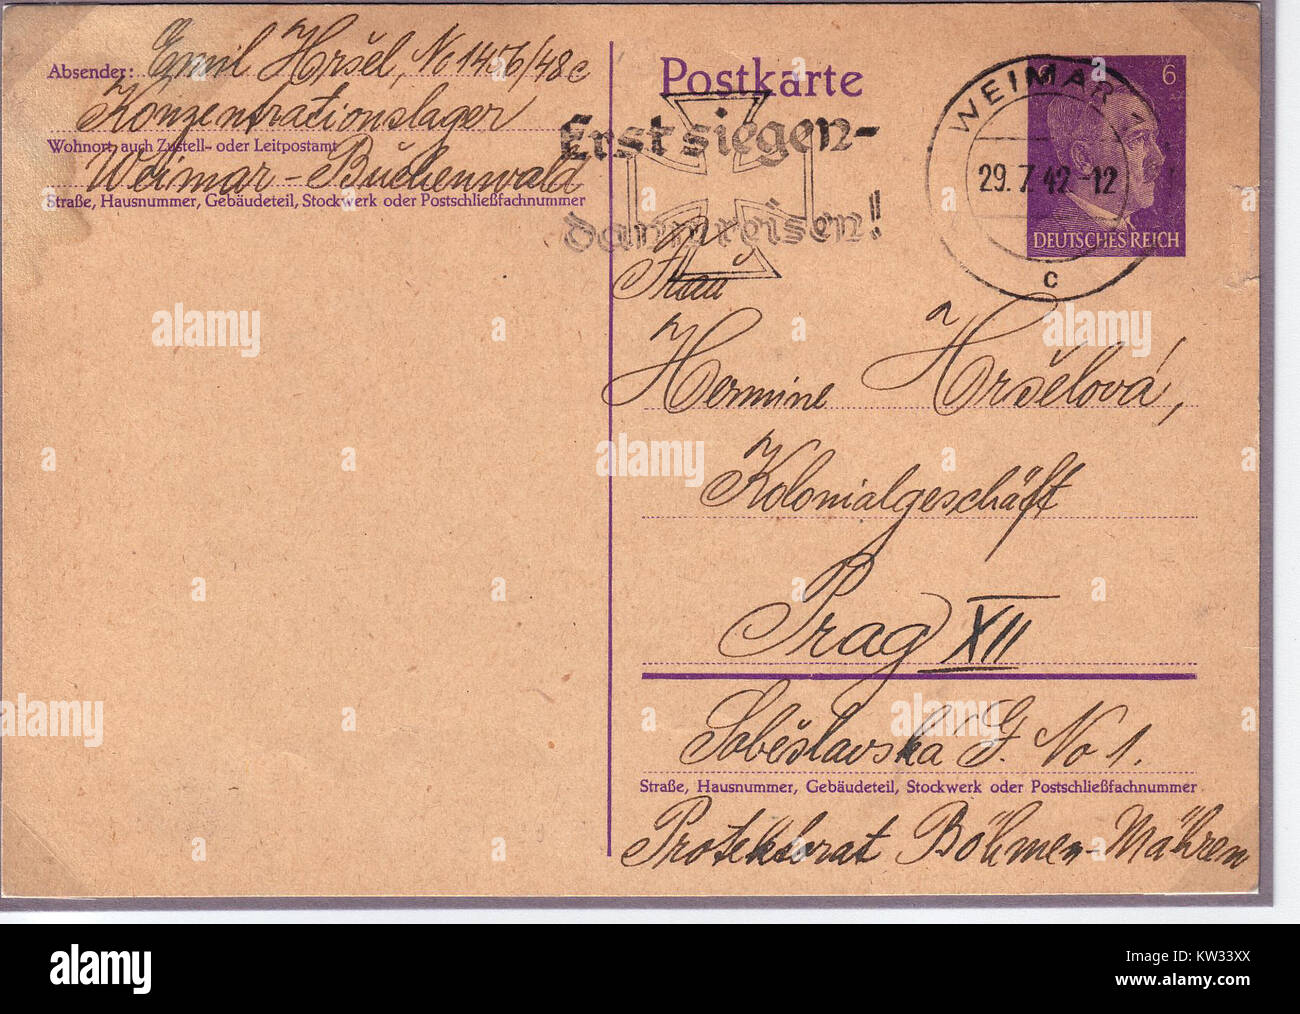 Absender: Emil Hršel, No 1456/48c
Konzentrationslager
Wohnort, auch Zustell- oder Leitpostamt
Weimar-Buchenwald
Straße, Hausnummer, Gebäudeteil, Stockwerk oder Postschließfachnummer
Postkarte
Erst siegen-
dann reisen!
WEIMAR 1
29.7.42-12
c
6 6
DEUTSCHES REICH
Frau
Hermine Hršelová,
Kolonialgeschäft
Prag XII
Soběslavská G. No 1.
Straße, Hausnummer, Gebäudeteil, Stockwerk oder Postschließfachnummer
Protektorat Böhmen-Mähren
alamy stock photo
KW33XX
www.alamy.com